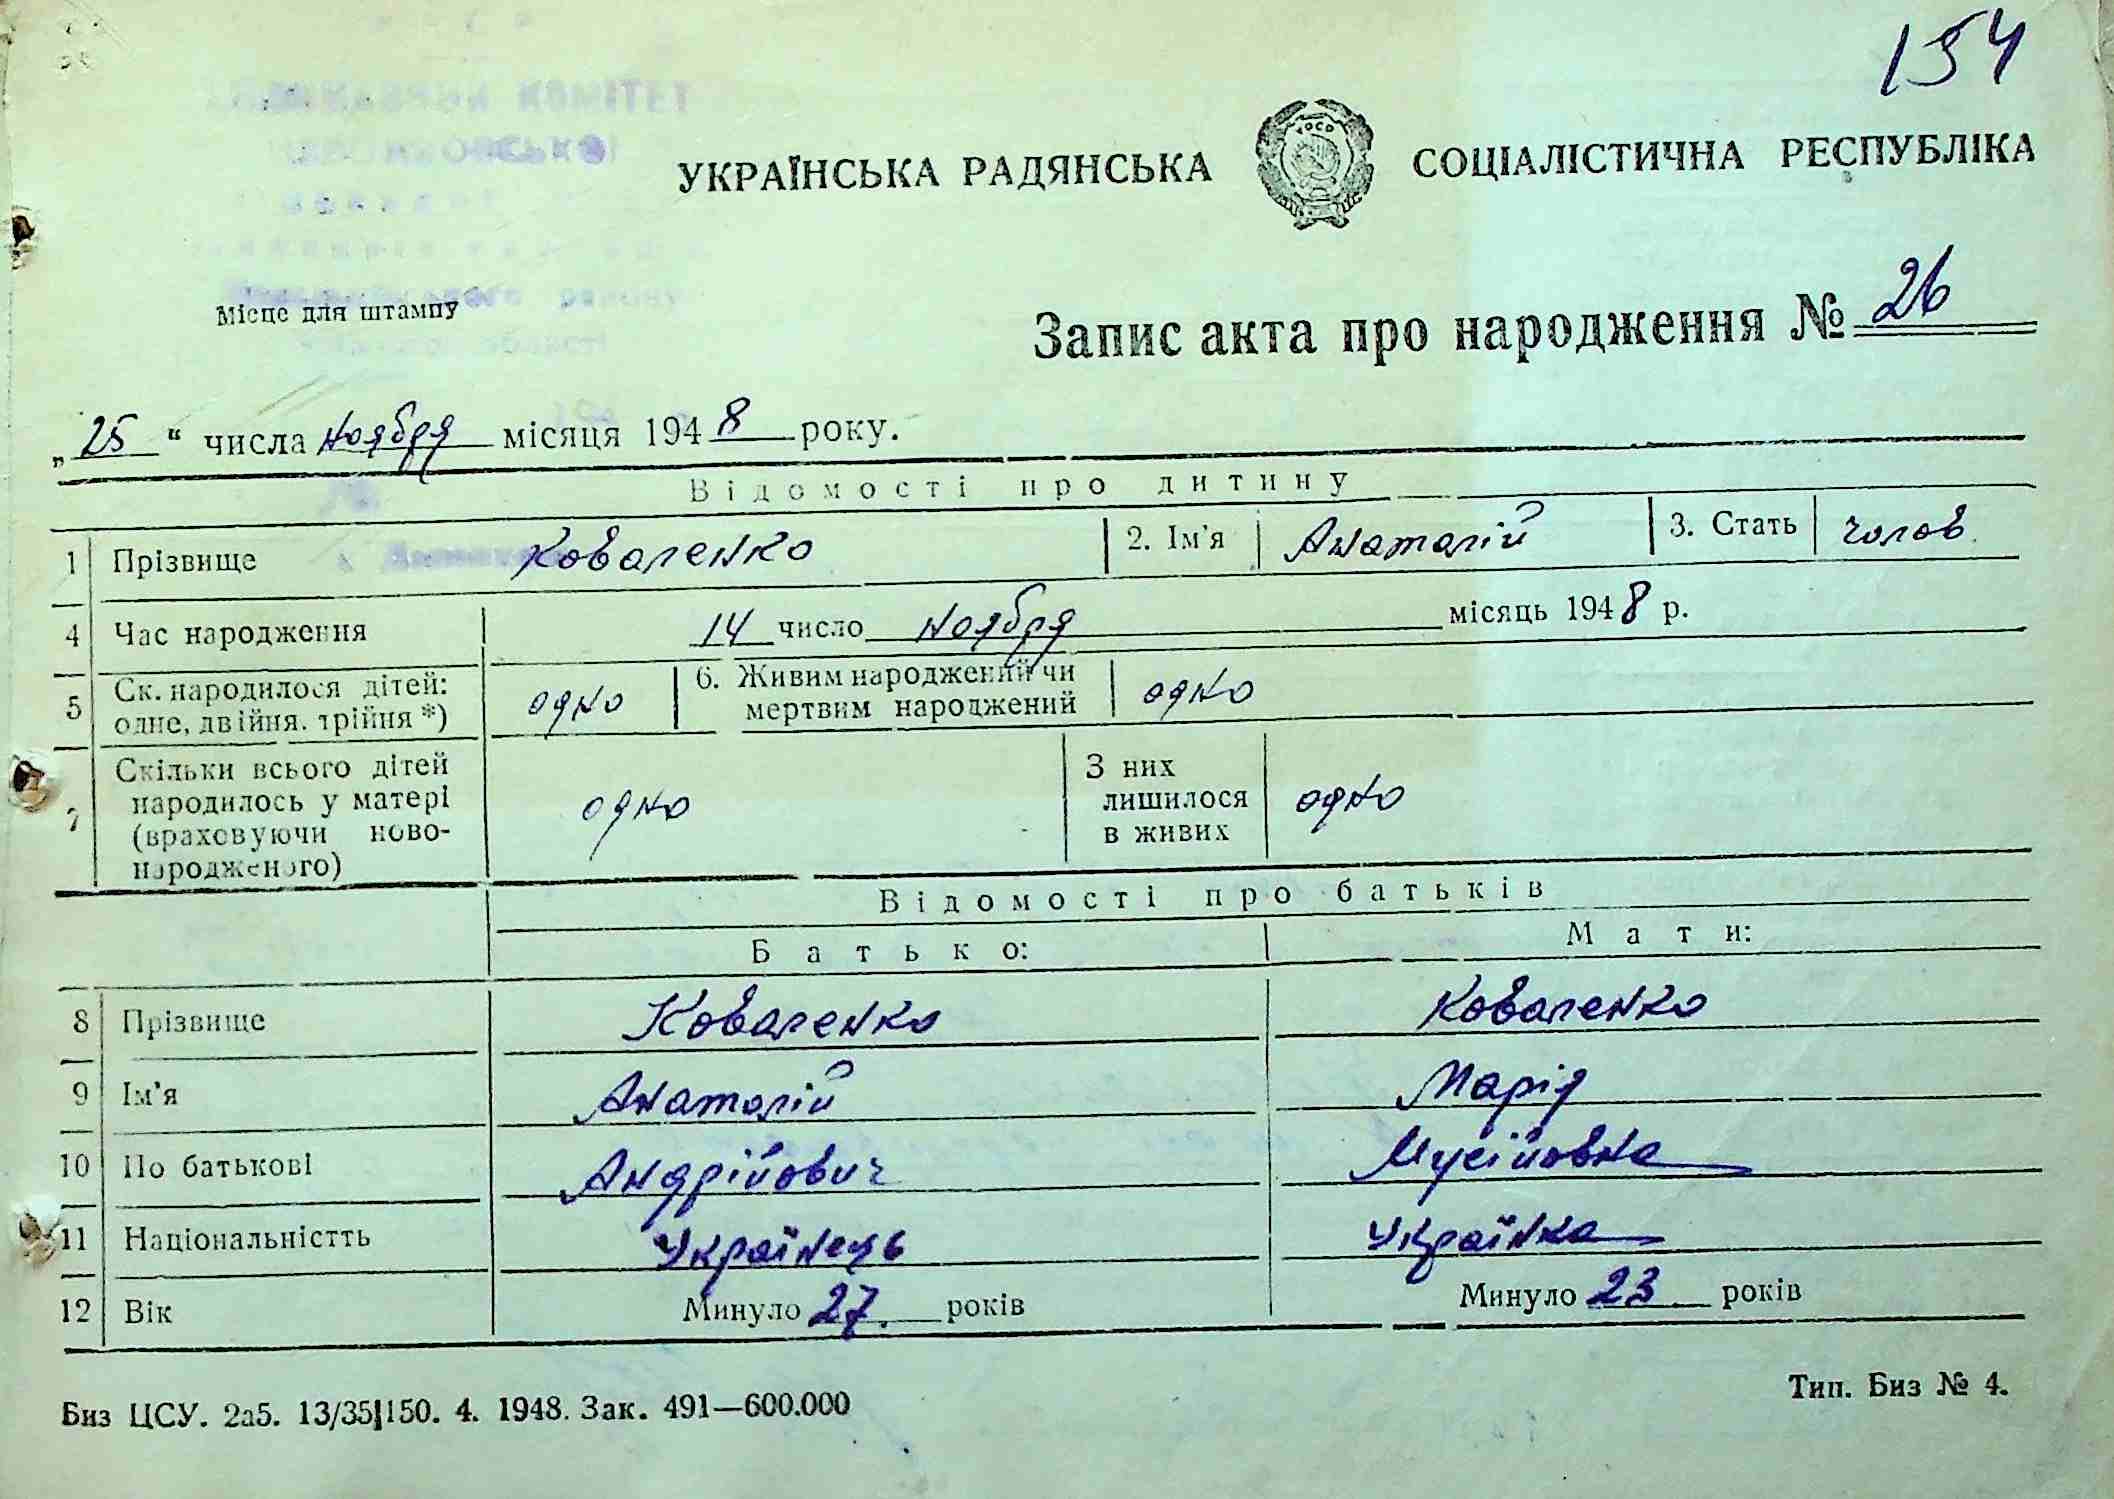 154
УКРАЇНСЬКА РАДЯНСЬКА СОЦІАЛІСТИЧНА РЕСПУБЛІКА
Місце для штампу
Запис акта про народження № 26
„25“ числа ноября місяця 1948 року.
Відомості про дитину
1 Прізвище Коваленко 2. Ім'я Анатолій 3. Стать чолов
4 Час народження 14 число ноября місяць 1948 р.
5 Ск. народилося дітей: одне, двійня. трійня *) одно 6. Живим народжений чи мертвим народжений одно
7 Скільки всього дітей народилось у матері (враховуючи ново-народженого) одно З них лишилося в живих одно
Відомості про батьків
Батько: Мати:
8 Прізвище Коваленко Коваленко
9 Ім'я Анатолій Марія
10 По батькові Андрійович Мусійовна
11 Національністть Українець Українка
12 Вік Минуло 27. років Минуло 23 років
Биз ЦСУ. 2а5. 13/35|150. 4. 1948. Зак. 491—600.000
Тип. Биз № 4.